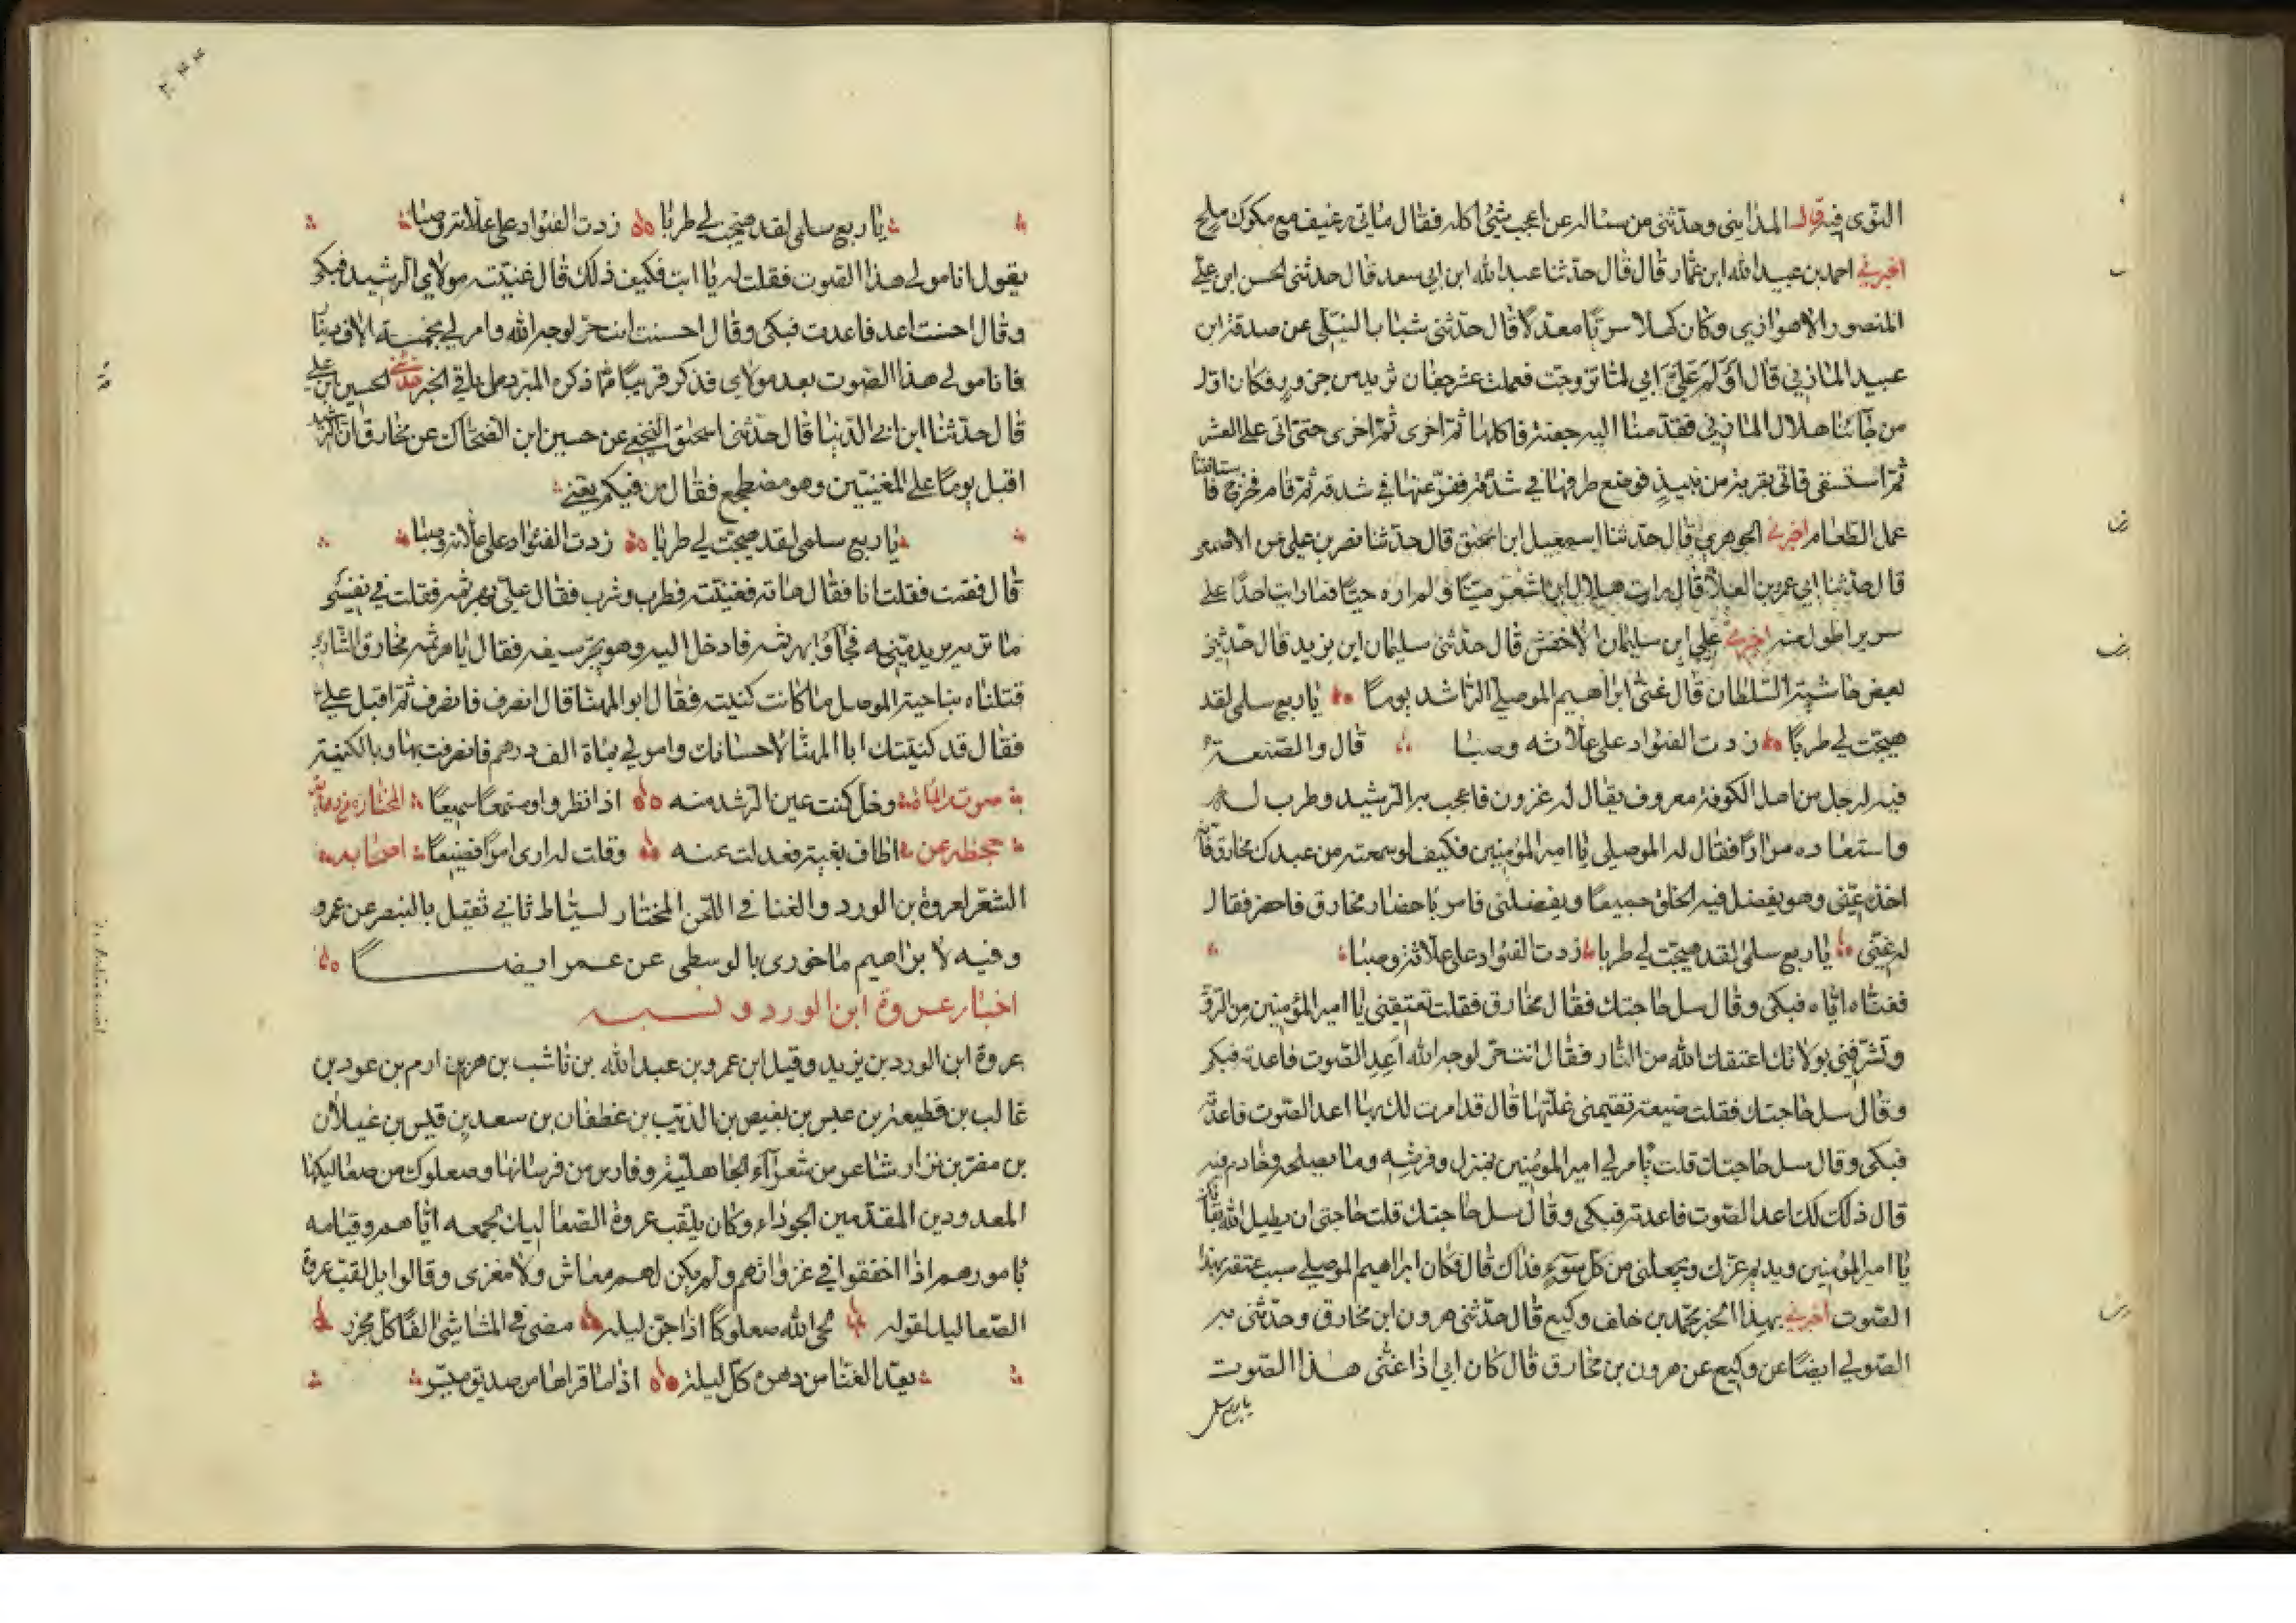 النوى فيه قال المدايني وحدثني من ساله عن اعجب شئ اكله فقال مأتي رغيف مع مكوك ملح
اخبرني احمد بن عبيد الله ابن عمار قال قال حدثنا عبد الله ابن ابي سعد قال حدثني الحسن ابن علي
المنصور الاهوازي وكان كهلا سريا معدلا قال حدثني شبابا النبلي عن صدقة ابن
عبيد المازني قال اولم علي ابي لما تزوجت فعملت عشر جفان ثريد من جزور فكان اول
من جائنا هلال المازني فقدمنا اليه جفنة فاكلها ثم اخرى ثم اخرى حتى اتى على العشر
ثم استسقى فاتي بقربة من نبيذ فوضع طرفها في شدقه ففرغها في شدقه ثم قام فخرج فاستانفنا
عمل الطعام اخبرني الجوهري قال حدثنا اسمعيل ابن اسحق قال حدثنا نصر بن علي عن الاصمعي
قال حدثنا ابي عمر بن العلا قال رايت هلال ابن اشعر ميتا ولم اره حيا فما رايت احدا على
سرير اطول منه اخبرني علي ابن سليمان الاخفش قال حدثني سليمان ابن يزيد قال حدثني
بعض حاشية السلطان قال غنى ابراهيم الموصلي الراشد يوما يا ربع سلمى لقد
هيجت لي طربا زدت الفؤاد على علاته وصبا قال والصنعة
فيه لرجل من اهل الكوفة معروف يقال له غزون فاعجب به الرشيد وطرب له
واستعاده مرارا فقال له الموصلي يا امير المؤمنين فكيف لو سمعته من عبدك مخارق فانه
اخذه عني وهو يفضل فيه الخلق جميعا ويفضلني فامر باحضار مخارق فاحضر فقال
له غنني يا ربع سلمى لقد هيجت لي طربا زدت الفؤاد على علاته وصبا
فغناه اياه فبكى وقال سل حاجتك فقال مخارق فقلت تعتقني يا امير المؤمنين من الرق
وتشرفني بولائك اعتقك الله من النار فقال انت حر لوجه الله اعد الصوت فاعدته فبكى
وقال سل حاجتك فقلت ضيعة تقيمني غلتها قال قد امرت لك بها اعد الصوت فاعدته
فبكى وقال سل حاجتك قلت يامر لي امير المؤمنين بمنزل وفرشه وما يصلحه وخادم فيه
قال ذلك لك اعد الصوت فاعدته فبكى وقال سل حاجتك قلت حاجتي ان يطيل الله بقاك
يا امير المؤمنين ويديم عزك ويجعلني من كل سوء فداك قال فكان ابراهيم الموصلي سبب عتقه بهذا
الصوت اخبرني بهذا الخبر محمد بن خلف وكيع قال حدثني هرون ابن مخارق وحدثني به
الصولي ايضا عن وكيع عن هرون بن مخارق قال كان ابي اذا غنى هذا الصوت
يا ربع سلمى
يا ربع سلمى لقد هيجت لي طربا زدت الفؤاد على علاته وصبا
يقول انا مولى هذا الصوت فقلت له يا ابت فكيف ذلك قال غنيته مولاي الرشيد فبكى
وقال احسنت اعد فاعدت فبكى وقال احسنت انت حر لوجه الله وامر لي بخمسة الاف دينار
فانا مولى هذا الصوت بعد مولاي فذكر قريبا مما ذكره المبرد من باقي الخبر حدثني الحسين ابن علي
قال حدثنا ابن ابي الدنيا قال حدثني اسحق النخعي عن حسين ابن الضحاك عن مخارق ان الرشيد
اقبل يوما على المغنيين وهو مضطجع فقال من فيكم يغني
يا ربع سلمى لقد هيجت لي طربا زدت الفئواد على علاته وصبا
قال فقمت فقلت انا فقال هاته فغنيته فطرب وشرب فقال علي بهرثمه فقلت في نفسي
ما تريد يريد منه فجاؤا بهرثمه فادخل اليه وهو يجر سيفه فقال يا هرثمه مخارق الشاري
قتلناه بناحية الموصل ما كانت كنيته فقال ابو المهنا قال انصرف فانصرف ثم اقبل علي
فقال قد كنيتك ابا المهنا لاحسانك وامر لي بماة الف درهم فانصرفت بها وبالكنية
صوت من الماة وخل كنت عين الرشد منه اذا نظر واومستمعا سميعا المختارة من رواية
جحظه عن اطاف بغيه فعدلت عنه وقلت له ارى امرا فضيعا اصحابه
الشعر لعروة بن الورد والغنا في اللحن المختار لسياط ثاني ثقيل بالبنصر عن عمرو
وفيه لابراهيم ماخوري بالوسطى عن عمر ايضا
اخبار عروة ابن الورد ونسبه
عروة ابن الورد بن يزيد وقيل ابن عمرو بن عبد الله بن ناشب بن هريم ارم بن عود بن
غالب بن قطيعة بن عبس بن بغيص بن الذيب بن غطفان بن سعد بن قيس بن غيلان
بن مضر بن نزار شاعر من شعرآء الجاهلية وفارس من فرسانها وصعلوك من صعاليكها
المعدودين المقدمين الجوداء وكان يلقب عروة الصعاليك لجمعه اياهم وقيامه
بامورهم اذا اخفقوا في غزواتهم ولم يكن لهم معاش ولا مغزى وقالوا بل لقب عروة
الصعاليك لقوله لحى الله صعلوكا اذا جن ليله مضى في المشاشي الفا كل مجزر
يعد الغنا من دهره كل ليلة اذا ما قراها من صديق ميسر